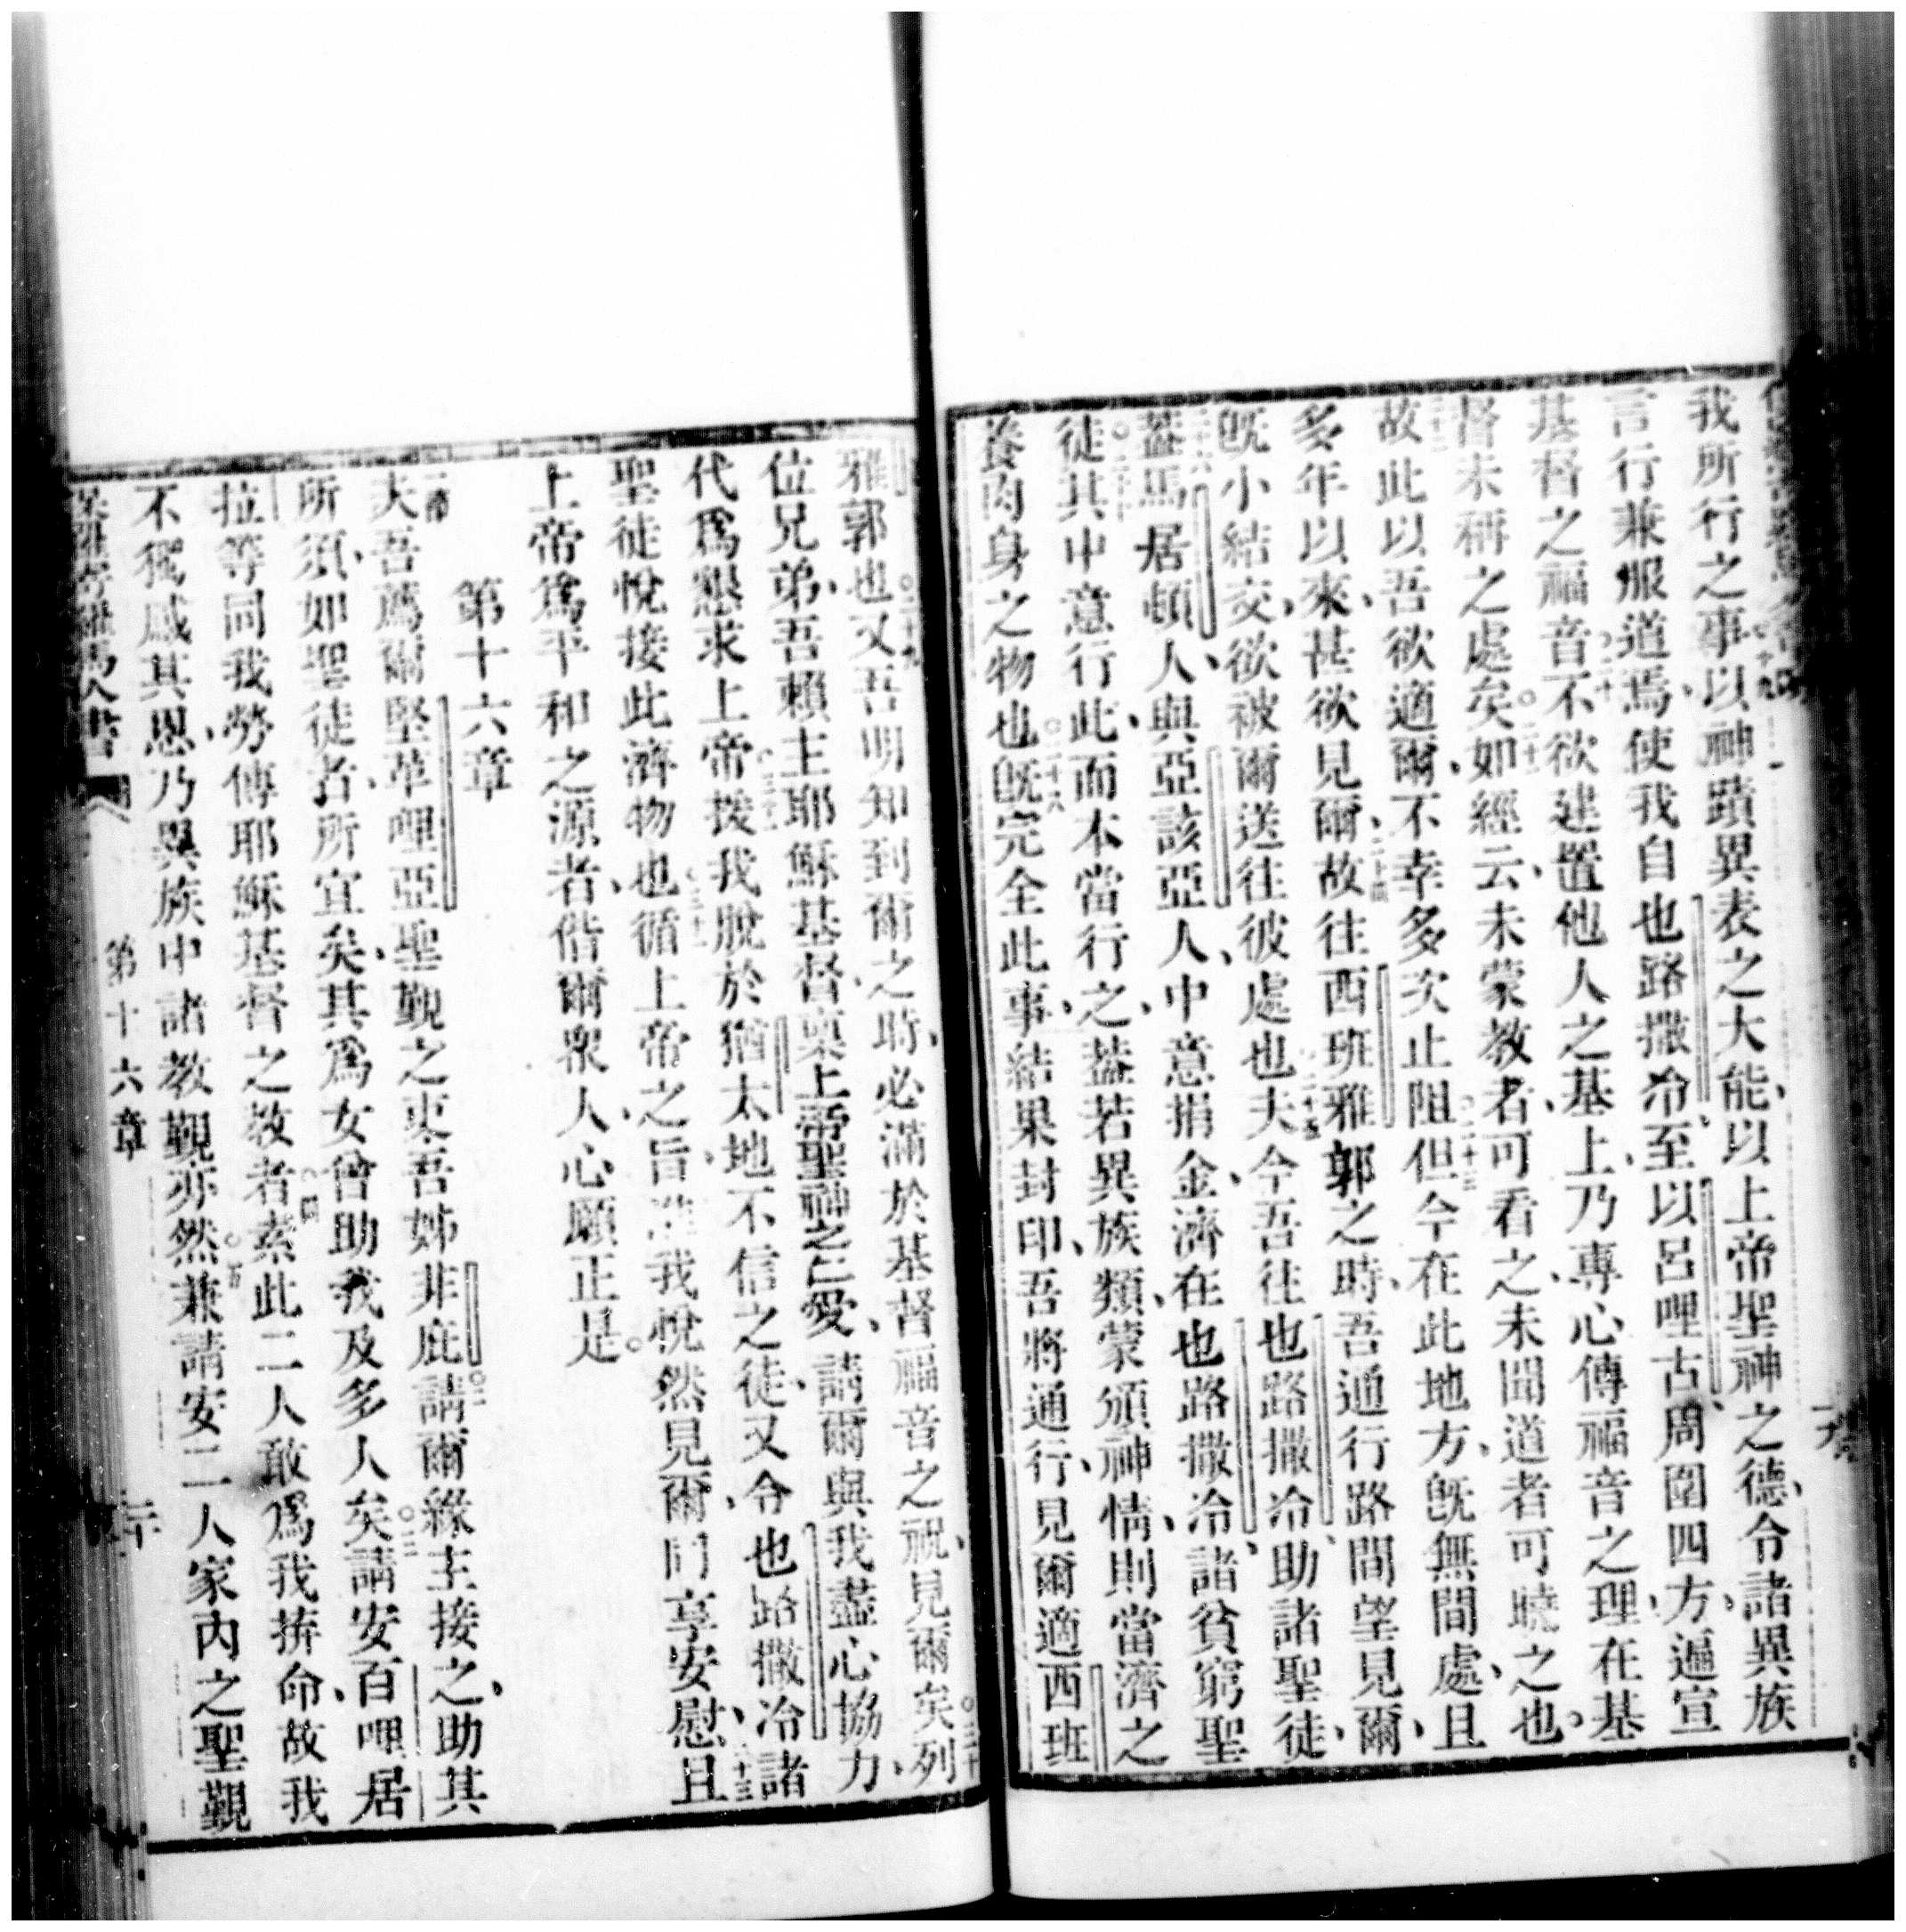 我所行之事○十九以神蹟異表之大能、以上帝聖神之德、令諸異族
言行兼服道焉、使我自也路撒冷、至以呂哩古、周圍四方、遍宣
基督之福音○二十不欲建置他人之基上、乃專心傳福音之理、在基
督未稱之處矣○二十一如經云、未蒙教者、可看之、未聞道者、可曉之也。
二十二故此以吾欲適爾、不幸多次止阻○二十三但今在此地方、旣無間處、且
多年以來、甚欲見爾、○二十四故往西班雅郭之時、吾通行路間、望見爾、
旣小結交、欲被爾送往彼處也○二十五夫今吾往也路撒冷、助諸聖徒、
二十六蓋馬居頓人、與亞該亞人、中意捐金、濟在也路撒冷、諸貧窮聖
徒○二十七其中意行此、而本當行之、蓋若異族類、蒙頒神情、則當濟之
養肉身之物也○二十八旣完全此事、結果封印、吾將通行、見爾適西班
雅郭也○二十九又吾明知到爾之時、必滿於基督福音之祝、見爾矣、○三十列
位兄弟、吾賴主耶穌基督、稟上帝聖神之仁愛、請爾與我盡心協力、
代爲懇求上帝○三十一援我脫於猶太地不信之徒、又令也路撒冷諸
聖徒悅接此濟物也○三十二循上帝之旨、我悅然見爾、同享安慰、三十三且
上帝爲平和之源者、偕爾衆人、心願正是。
第十六章
一節夫吾薦爾堅革哩亞聖覲之吏、吾姊非庇○二請爾緣主接之、助其
所須、如聖徒者、所宜矣、其爲女曾助我及多人矣○三請安百哩居
拉等同我勞傳耶穌基督之教者○四素此二人敢爲我捹命、故我
不獨感其恩、乃異族中諸教覲亦然○五兼請安二人家內之聖覲
第十六章
二十